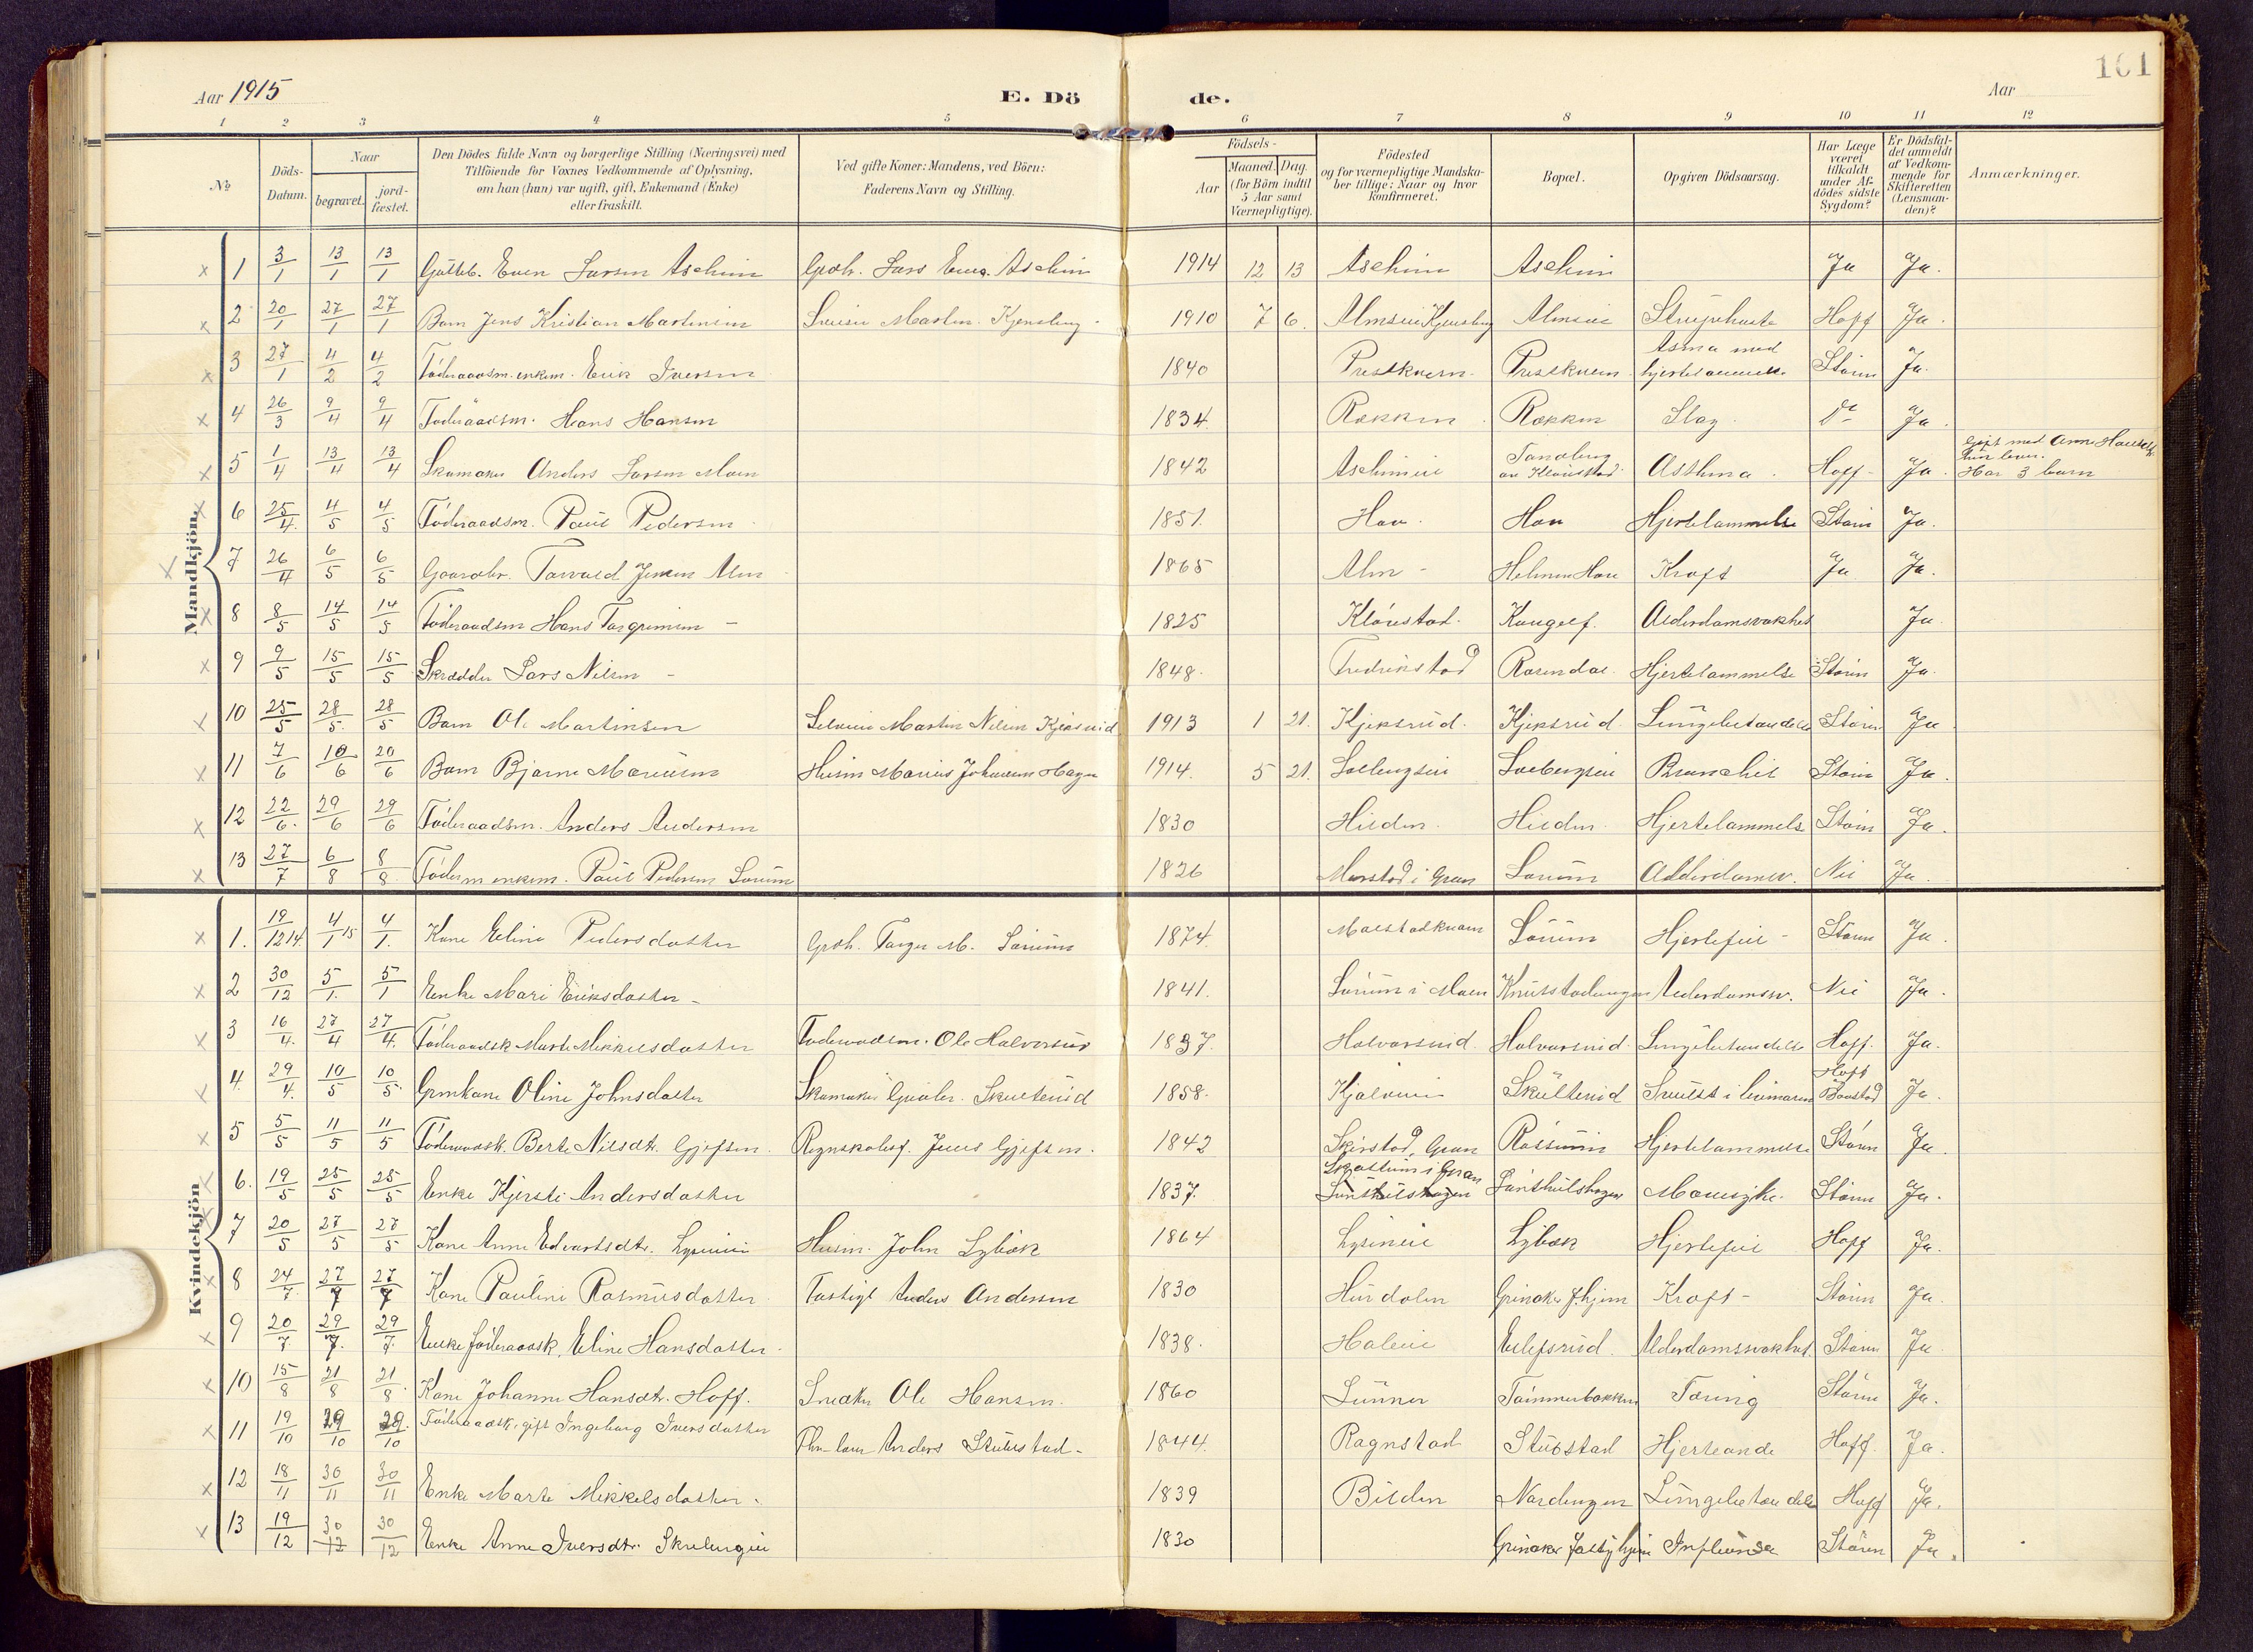 Aar 1915 E. Dö de. Aar 101
1 2 3 4 5 6 7 8 9 10 11 12
No
Döds-Datum.
Naar
begravet.
jordfæstet.
Den Dödes fulde Navn og borgerlige Stilling (Næringsvei) med
Tilföiende for Voxnes Vedkommende af Oplysning,
om han (hun) var ugift, gift, Enkemand (Enke)
eller fraskilt.
Ved gifte Koner: Mandens, ved Börn:
Faderens Navn og Stilling.
Födsels-
Aar
Maaned. Dag.
(for Börn indtil
5 Aar samt
Værnepligtige).
Födested
og for værnepligtige Mandska-
ber tillige: Naar og hvor
konfirmeret.
Bopæl.
Opgiven Dödsaarsag.
Har Læge
været
tilkaldt
under Af-
dödes sidste
Sygdom?
Er Dödsfal-
det anmeldt
af Vedkom-
mende for
Skifteretten
(Lensman-
den)?
Anmærkninger.
Mandkjön.
1 3/1 13/1 13/1 Even Larsen Aschim Lars Aschim 1914 12 13 Aschim Aschim Ja Ja.
2 20/1 27/1 27/1 Barn Jens Kristian Martinsen Martin Kjensberg 1910 7 6. Almseie Strupehoste Hoff Ja.
3 27/1 4/2 4/2 Föderaadsm. enkem. Erik Iversen 1840 Prestkvern Prestkvern Asma med hjertelammelse Stören Ja.
4 26/3 9/4 9/4 Föderaadsm. Hans Hansen 1834. Rækken Rækken Slag Do Ja.
5 1/4 13/4 13/4 Skomaker Anders Larsen Moen 1842 Aschimeie Sandberg Asthma Hoff Ja. gift med Anne
hun lever.
Har 3 barn
6 25/4. 4/5 4/5 Föderaadsm. Paul Pedersen 1851. Hov. Hov Hjertelammelse Stören Ja.
7 26/4 6/5 6/5 Gaardbr. Torvald Jensen Alm 1865 Alm Kræft Ja Ja.
8 8/5 14/5 14/5 Föderaadsm Hans Torgrimsen 1825 Klövstad. Alderdomsvakhet Ja
9 9/5 15/5 15/5 Skrædder Lars Nilsen 1848. Fredrikstad Rosendal Hjertelammelse Stören Ja.
10 25/5 28/5. 28/5 Barn Ole Martinsen Martin Nilsen Kjeksrud 1913 1 21. Kjeksrud. Kjeksrud Lungebetændelse Stören Ja
11 7/6 10/6 20/6 Barn Bjarne Mariusen Husm Marius Johansen Hagen 1914. 5 21. Bronchit Stören Ja.
12 22/6. 29/6 29/6 Föderaadsm. Anders Andersen 1830 Hilden. Hilden. Hjertelammelse Stören Ja.
13 27/7 6/8 8/8 Föderm enkem. Paul Pedersen Sörum 1826 Morstad i Gran Sörum Alderdomsv. Nei Ja.
Kvindekjön
1. 19/12 14 4/1 15 4/1. Kone Eline Pedersdatter Grdb. Torger M. Sörum 1874. Sörum Hjertefeil Stören Ja.
2 30/12 5/1. 5/1 Enke Mari Eriksdatter 1841. Sörum i Moen Alderdomssv. Nei Ja.
3 16/4. 27/4 27/4. Föderaadsk Marte Mikkelsdatter Föderaadsm. Ole Halvorsrud 1837. Halvorsrud. Halvorsrud. Lungebetændelse Hoff. Ja.
4. 29/4. 10/5 10/5. Oline Johnsdatter Skomaker Skulterud 1858. Skulterud Hoff Ja.
5 5/5 11/5 11/5 Föderaadsk. Berte Nilsdt. Gjefsen. Jens Gjefsen. 1842 Skirstad, Gran Rossum Hjertelammelse Stören Ja.
6. 19/5 25/5 25/5 Enke Kjersti Andersdatter 1837. i Gran Mavesyke. Stören Ja.
7 20/5 27/5 27/5 Kone Anne Edvartsdt. Husm. John Lybæk 1864 Lybæk Hjertefeil Hoff Ja.
8 24/7. 27/7 27/7 Kone Pauline Rasmusdatter Anders Andersen 1830 Hurdalen Grinaker f.hjem Kræft Stören Ja
9 20/7. 29/7. 29/7. Enke föderaadsk. Eline Hansdatter 1838. Eilefsrud. Alderdomssvakhet. Stören Ja
10 15/8 21/8 21/8. Kone Johanne Hansdt. Hoff. Snedker Ole Hansen. 1860 Lunner Tömmerbakken Tæring Stören Ja.
11 19/10 29/10 29/10. Föderaadsk. gift Ingeborg Iversdatter Anders Stubstad 1844. Ragnstad Stubstad Hjerteonde Hoff. Ja.
12 18/11 30/11 30/11 Enke Marte Mikkelsdatter. 1839 Bilden Nordengen Lungebetændelse Hoff Ja.
13 19/12 30/12 30/12 Enke Anne Iversdtr. 1830 Grinaker Influensa Stören Ja.